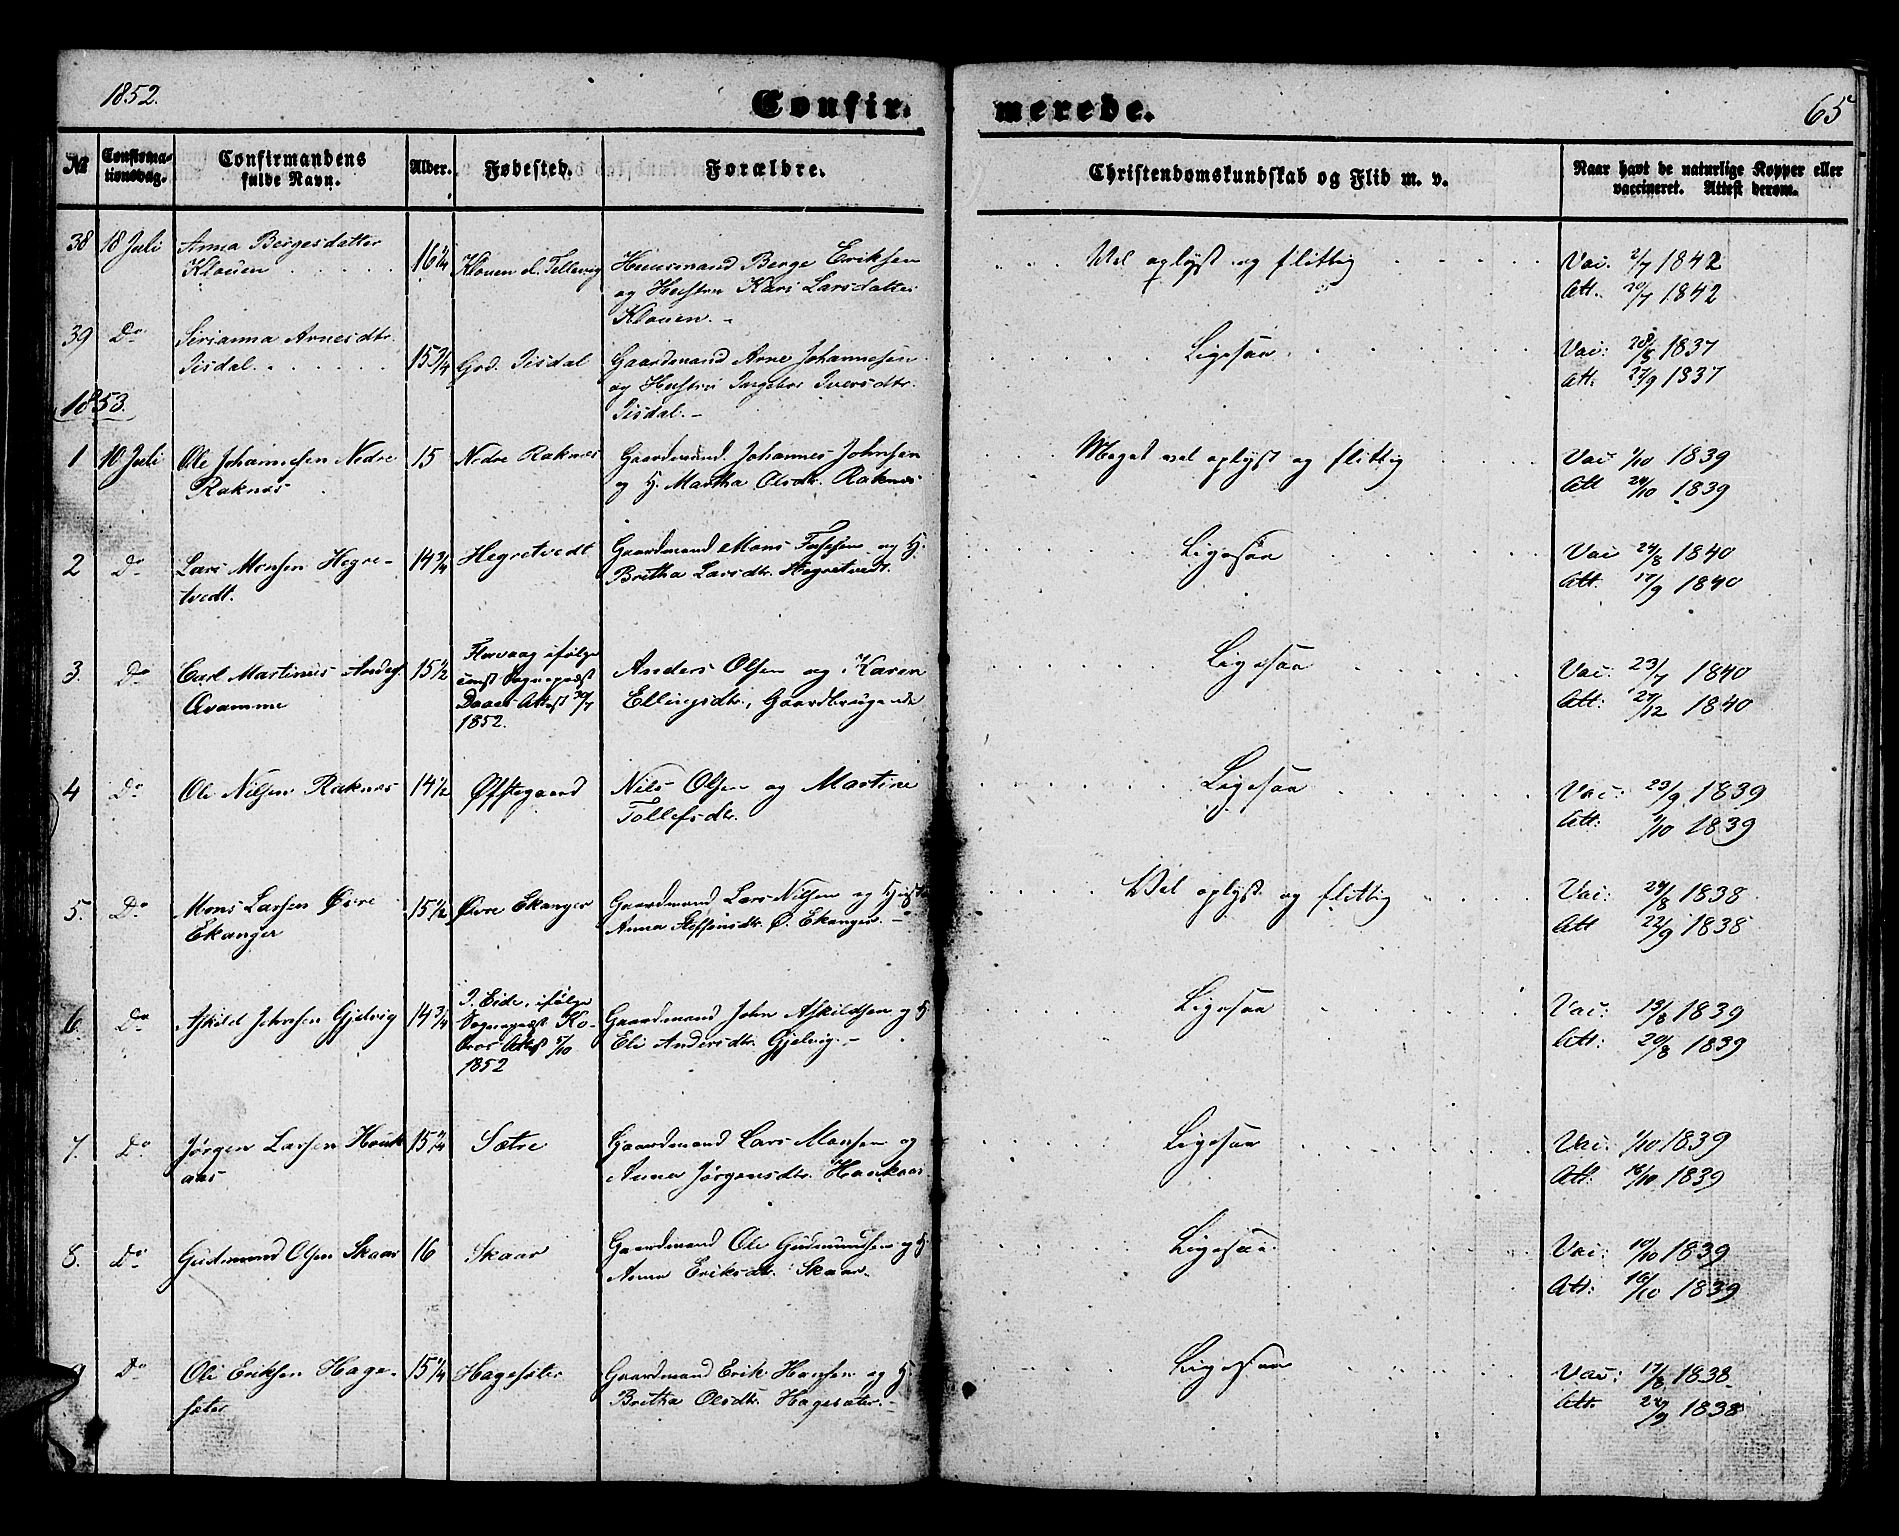 1852.
Confir. merede. 65
No
Confirma-
tionsdag.
Confirmandens
fulde Navn.
Alder.
Fødested.
Forældre.
Christendomskundskab og Flid m. v.
Naar havt de naturlige Kopper eller
vaccineret. Attest derom.
38 18 Juli Anna Bergesdatter
Klouen 16 1/4 Klouen d. Tellevig
Huusmand Berge Eriksen
og Hustru Kari Larsdatter
Klouen.
Vel oplyst og flittig
Vac. 2/7 1842
Att. 20/7 1842
39 Do Sirianna Arnesdtr.
Tisdal 15 3/4 Grd. Tisdal
Gaardmand Arne Johannesen
og Hustru Ingebor Iversdtr.
Tisdal.
Ligesaa
Vac: 28/8 1837
Att. 27/9 1837
1853.
1 10 Juli Ole Johannesen Nedre
Raknes 15 Nedre Raknes
Gaardmand Johannes Johnsen
og H. Martha Olsdtr. Raknes
Meget vel oplyst og flittig
Vac 1/10 1839
Att 24/10 1839
2 Do Lars Monsen Hegre-
tvedt. 14 3/4 Hegretvedt
Gaardmand Mons og H.
Britha Larsdtr. Hegretvedt.
Ligesaa
Vac 24/8 1840
Att. 17/9 1840
3. Do Carl Martinus Anders.
Qvamme 15 1/2
Florvaag ifølge
const Sognepræst
Daaes Attest 30/7
1852.
Anders Olsen og Karen
Ellingsdtr., Gaardbrugende
Ligesaa
Vac: 23/7 1840
Att: 27/12 1840
4 Do Ole Nilsen Raknes 14 1/2 Øfstegaard
Nils Olsen og Martine
Tollefsdtr.
Ligesaa
Vac: 23/9 1839
Att: 1/10 1839
5. Do Mons Larsen Øvre
Ekanger 15 1/2 Øvre Ekanger
Gaardmand Lars Nilsen og Hust.
Anna Steffensdtr. Ø. Ekanger.
Vel oplyst og flittig
Vac: 24/8 1838
Att 22/9 1838
6. Do Askild Johnsen Gjelvig 14 3/4
I. Eide, ifølge
Sognepræst Ko-
Attest 5/10
1852
Gaardmand John Askildsen og H
Eli Andersdtr. Gjelvig.
Ligesaa
Vac: 13/8 1839
Att: 20/8 1839
7. Do Jørgen Larsen Houk
aas 15 3/4 Sætre
Gaardmand Lars Monsen og
Anna Jørgensdtr. Haukaas
Ligesaa
Vac: 1/10 1839
Att: 16/10 1839
8. Do Gudmund Olsen Skaar 16 Skaar
Gaardmand Ole Gudmundsen og H.
Anna Eriksdtr. Skaar.
Ligesaa
Vac: 10/10 1839
Att: 16/10 1839
9 Do Ole Eriksen Hage-
sæter 15 1/4 Hagesæter
Gaardmand Erik Hansen og H.
Britha Olsdtr. Hagesæter.
Ligesaa
Vac: 17/8 1838
Att. 22/9 1838